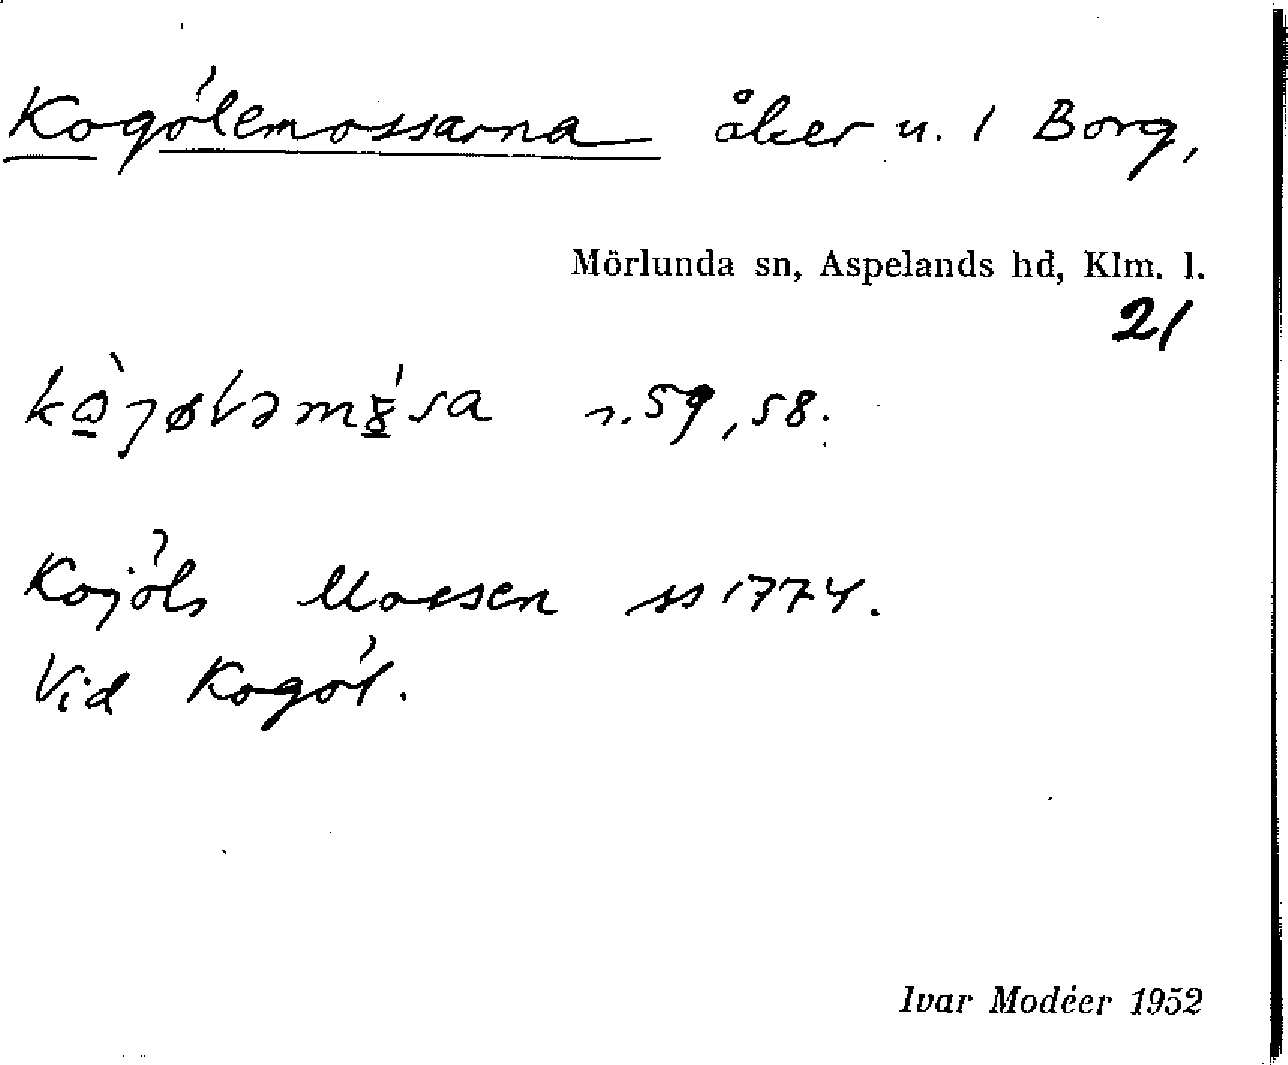 Kogölemossarna åker u. 1 Borg,
Mörlunda sn, Aspelands hd, Klm. l.
21
n. 59, 58.
Kojöls Mossen ss 1774.
Vid Kogöl.
Ivar Modéer 1952